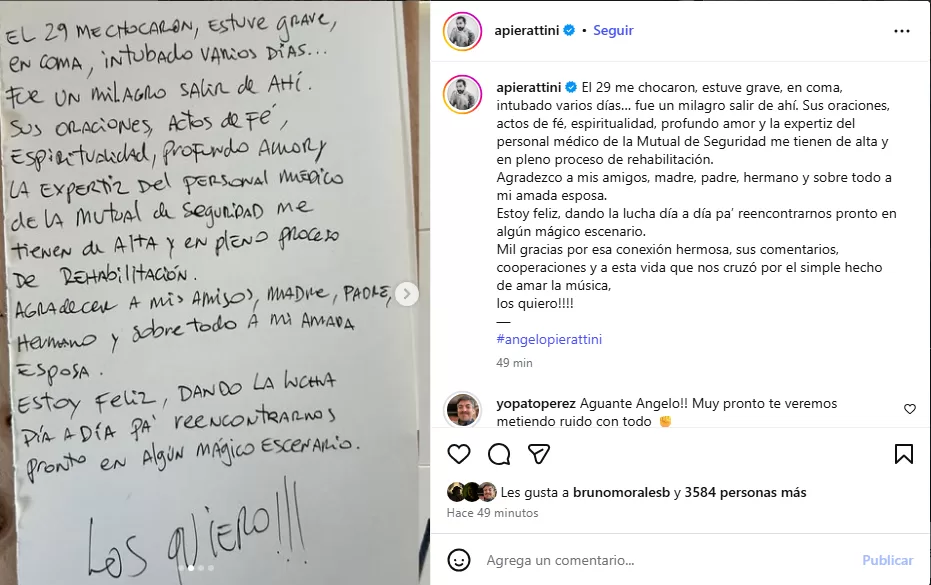 EL 29 ME CHOCARON, ESTUVE GRAVE,
EN COMA, INTUBADO VARIOS DÍAS...
FUE UN MILAGRO SALIR DE AHÍ.
SUS ORACIONES, ACTOS DE FÉ,
ESPIRITUALIDAD, PROFUNDO AMOR Y
LA EXPERTIZ DEL PERSONAL MÉDICO
DE LA MUTUAL DE SEGURIDAD ME
TIENEN DE ALTA Y EN PLENO PROCESO
DE REHABILITACIÓN.
AGRADECER A MIS AMIGOS, MADRE, PADRE,
HERMANO Y SOBRE TODO A MI AMADA
ESPOSA.
ESTOY FELIZ, DANDO LA LUCHA
DÍA A DÍA PA' REENCONTRARNOS
PRONTO EN ALGÚN MÁGICO ESCENARIO.
LOS QUIERO!!!
apierattini • Seguir
apierattini El 29 me chocaron, estuve grave, en coma,
intubado varios días... fue un milagro salir de ahí. Sus oraciones,
actos de fé, espiritualidad, profundo amor y la expertiz del
personal médico de la Mutual de Seguridad me tienen de alta y
en pleno proceso de rehabilitación.
Agradezco a mis amigos, madre, padre, hermano y sobre todo a
mi amada esposa.
Estoy feliz, dando la lucha día a día pa' reencontrarnos pronto en
algún mágico escenario.
Mil gracias por esa conexión hermosa, sus comentarios,
cooperaciones y a esta vida que nos cruzó por el simple hecho
de amar la música,
los quiero!!!!
—
#angelopierattini
49 min
yopatoperez Aguante Angelo!! Muy pronto te veremos
metiendo ruido con todo ✊
Les gusta a brunomoralesb y 3584 personas más
Hace 49 minutos
Agrega un comentario...
Publicar